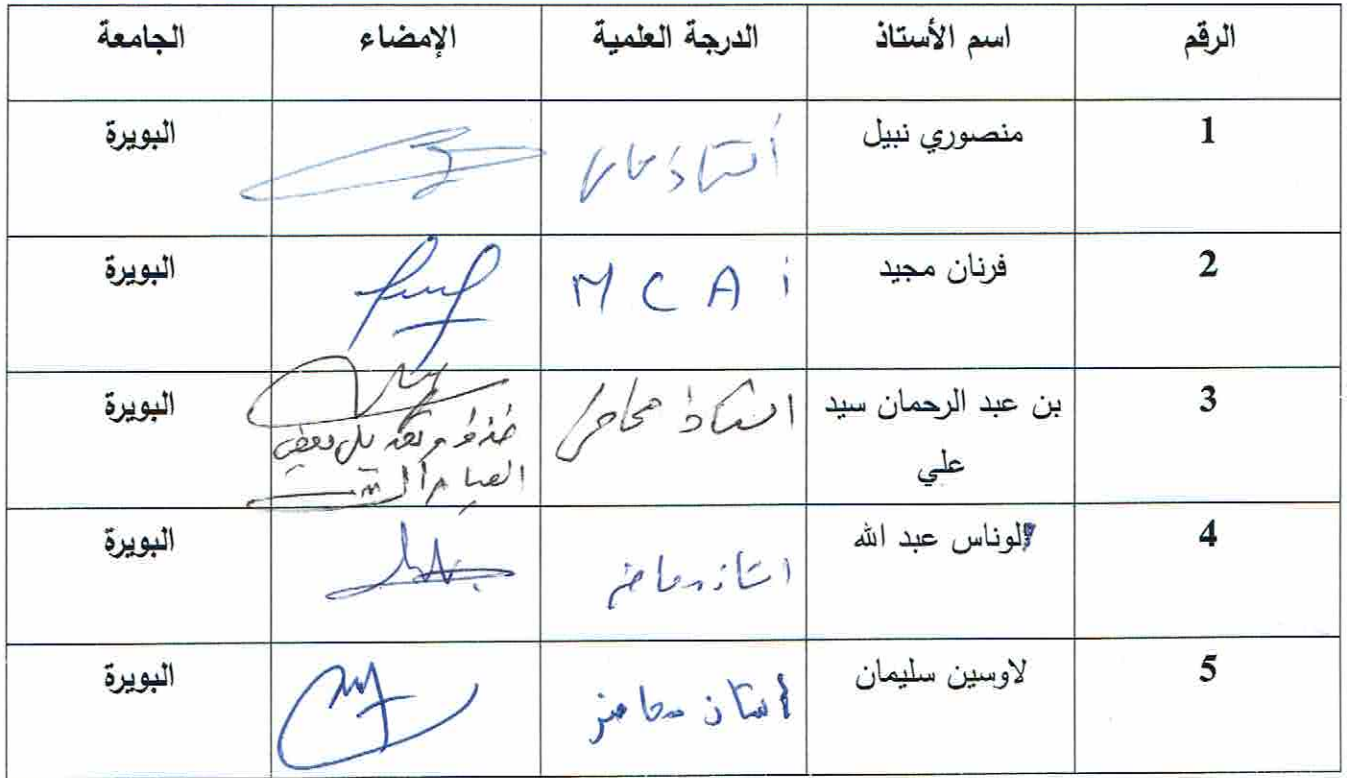 الرقم اسم الأستاذ الدرجة العلمية الإمضاء الجامعة
1 منصوري نبيل أستاذ محاضر البويرة
2 فرنان مجيد M C A أ البويرة
3 بن عبد الرحمان سيد استاذ محاضر البويرة
علي
حذف وتعديل بعض
العبارات
4 لوناس عبد الله استاذ محاضر البويرة
5 لاوسين سليمان استاذ محاضر البويرة